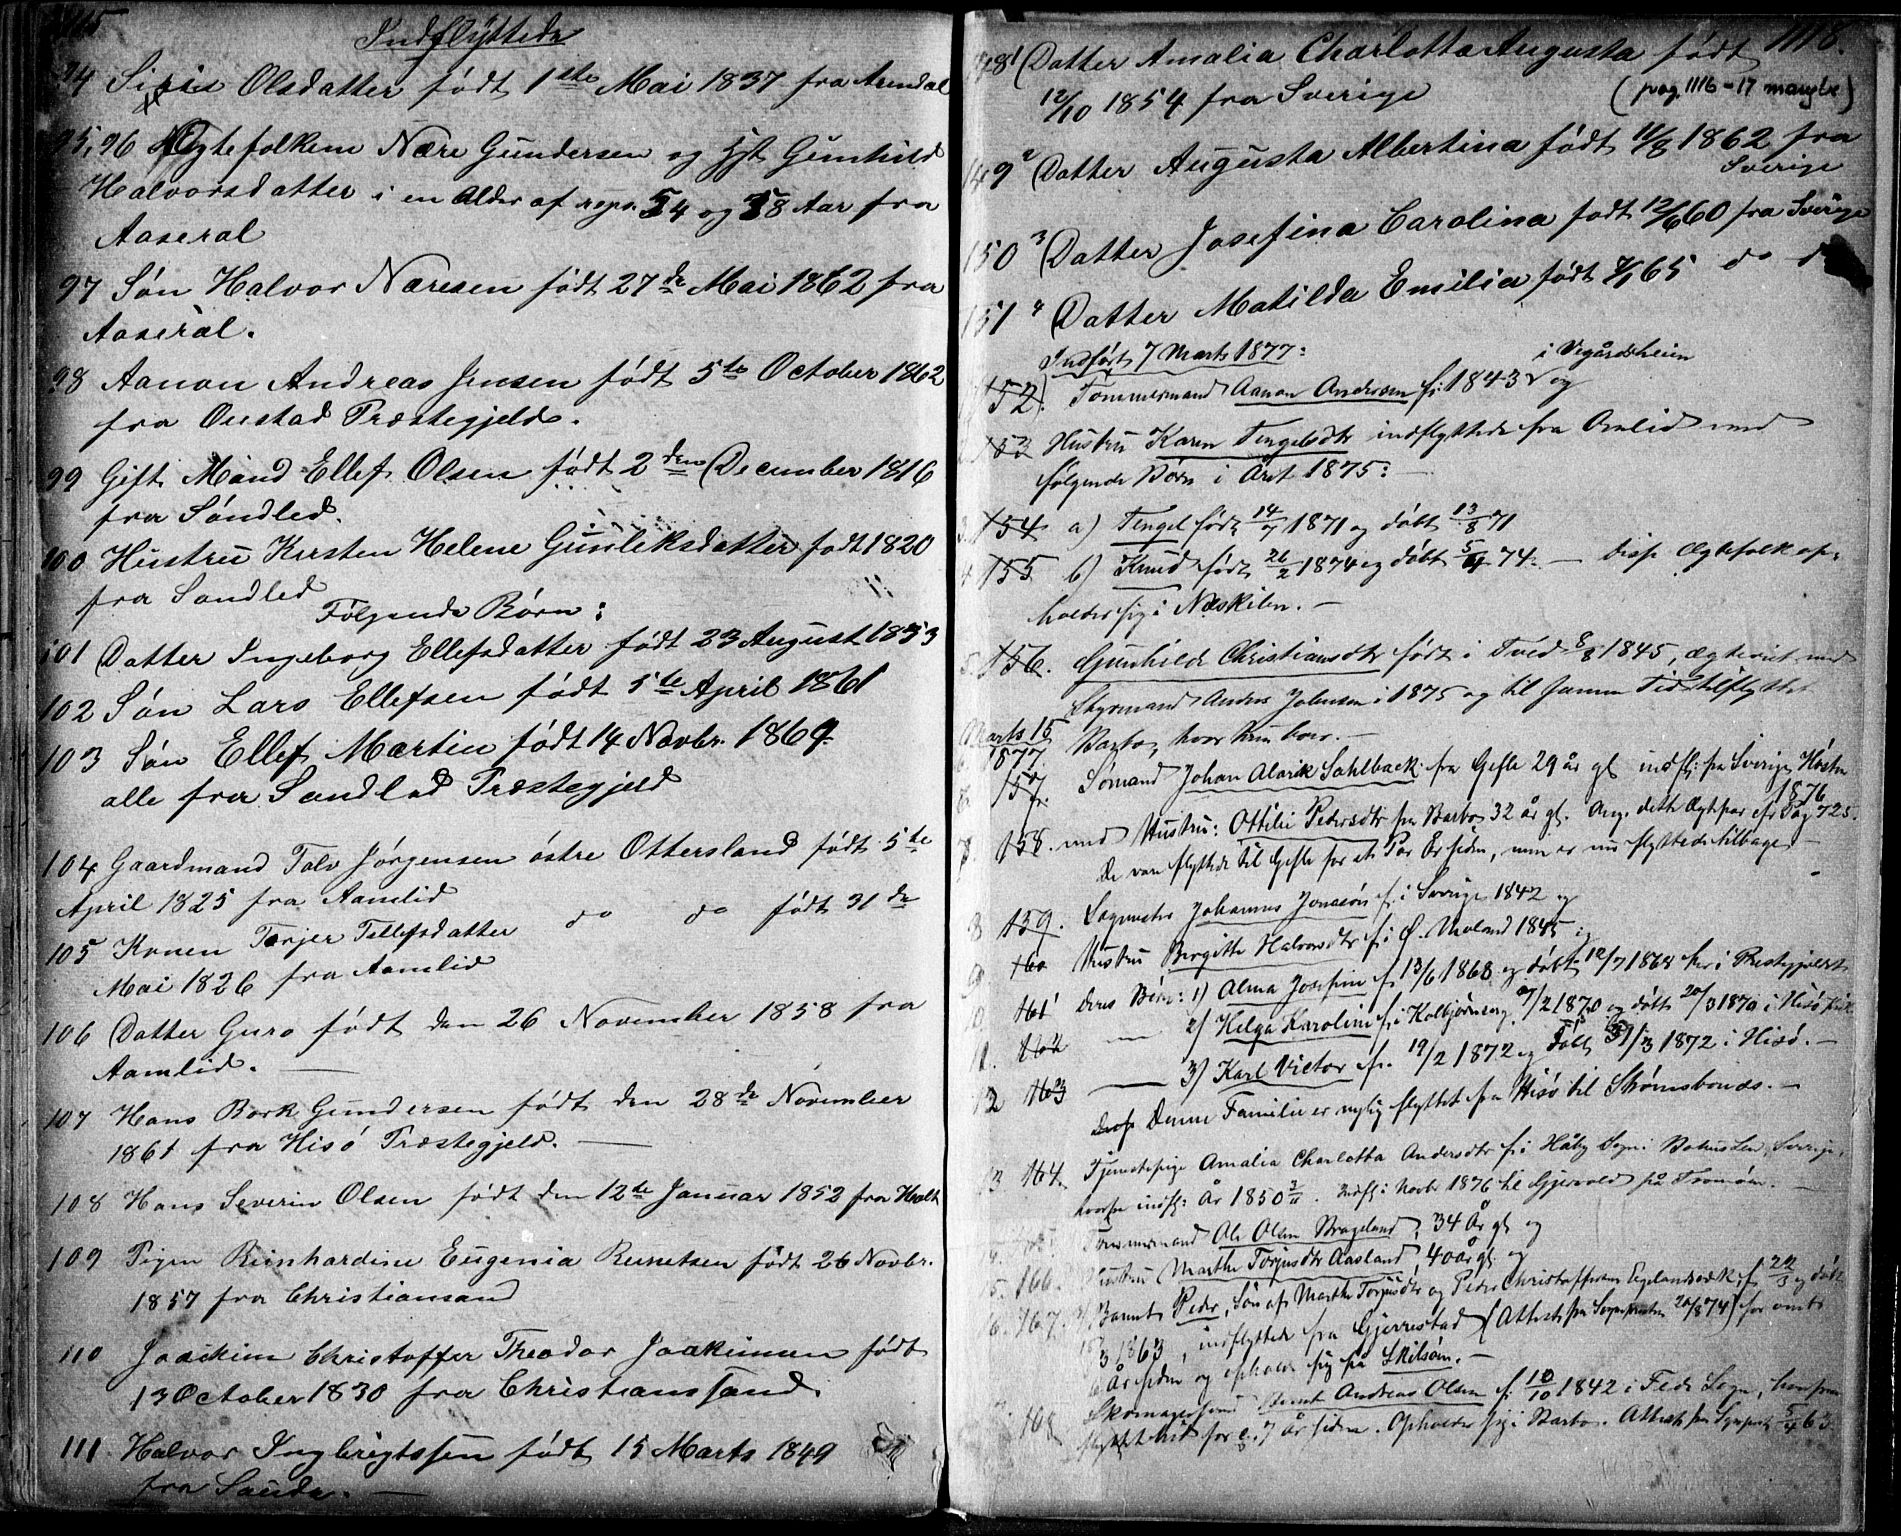 1115
Indflyttede
94 Siris Olsdatter født 1ste Mai 1837 fra Arendal
95, 96 Ægtefolkene Nære Gundersen og Hst Gunhild
Halvorsdatter i en Alder af resp. 54 og 58 Aar fra
Aaseral
97 Søn Halvor Næresen født 27de Mai 1862 fra
Aaseral.
98 Aanon Andreas Jensen født 5te October 1862
fra Præstegjeld.
99 Gift Mand Ellef Olsen født 2den December 1816
fra Søndled.
100 Hustru Kirsten Helene Gunleksdatter født 1820
fra Søndled
Følgende Børn:
101 Datter Ingeborg Ellefsdatter født 23 August 1853
102 Søn Lars Ellefsen født 5te April 1861
103 Søn Ellef Martin født 14 Novbr. 1869.
alle fra Søndled Præstegjeld
104 Gaardmand Tolv Jørgensen østre Ottersland født 5te
April 1825 fra Aamlid
105 Konen Torjer Tellefsdatter do do født 31de
Mai 1826 fra Aamlid
106 Datter Guro født den 26 November 1858 fra
Aamlid. —
107 Hans Bork Gundersen født den 28de November
1861 fra Hisø Præstegjeld. —
108 Hans Severin Olsen født den 12te Januar 1852 fra Holt
109 Pigen Reinhardine Eugenia Reinertsen født 26 Novbr.
1857 fra Christiansand
110 Joackim Christoffer Theodor Joakimsen født
13 October 1830 fra Christianssand.
111 Halvor Ingbrigtssen født 15 Marts 1849
fra Sande. —
1118.
148 1 Datter Amalia Charlotta Augusta født
12/10 1854 fra Sverige
(pag. 1116-17 mangler)
149 2 Datter Augusta Albertina født 11/8 1862 fra
Sverige
150 3 Datter Josefina Carolina født 12/6 60 fra Sverige
151 4 Datter Matilda Emilia født 7/1 65 do
Indført 7 Marts 1877:
i Vegårdsheien
152). Tømmermand Aanon Andersen f: 1843 og
153 Hustru Karen Tengelsdtr indflyttede fra Omlid med
følgende Børn i Året 1875:
3. 154 a) Tengel født 14/7 1871 og døbt 13/8 71
4 155 b) Knud født 26/2 1874 og døbt 5/4 74. — disse Ægtefolk op-
holder sig i Neskilen. —
5. 156. Gunhilde Christiansdtr født i Tved 8/8 1845, ægteviet med
Styrmand Anders Johnsen i 1875 og til samme Tid tilflyttet
Barbo, hvor hun boer. —
Marts 15
1877
6 157. Sømand Johan Alarik Sahlback fra Gefle 29 år gl indfl: fra Sverige Høsten
1876
7. 158. med Hustru: Ottilie Pedersdtr fra Barbo 32 år gl. Ang. dette Ægtepar cfr Pag 725.
De vare flyttede til Gefle for et Par År siden, men er nu flyttede tilbage. —
8 159. Johannes Jonasøn f. i Sverige 1842 og
9. 160 Hustru Birgitte Halvorsdtr f. i Ø. Moland 1845
10. 161 deres Børn: 1) Alma Josefine f. 13/6 1868 og døbt 12/7 1868 her i Prestegjeldet
11. 162 — 2) Helga Karoline f. i Kolbjørnsvig 7/2 1870 og døbt 20/3 1870 i Hisø
12 163 — 3) Karl Victor f. 19/2 1872 og døbt 31/3 1872 i Hisø. —
Denne Familie er nylig flyttet fra Hisø til Strømsbonæs. —
13 164. Tjenestepige Amalia Charlotta Andersdtr f. i Håby Sogn i Bohuslen, Sverige,
hvorfra indfl: År 1850 3/11. Indfl. i Novbr 1876 til Gjervold på Tromøen. —
14. 165 Tømmermand Ole Olsen Brageland, 34 År gl og
15. 166. Hustru Marthe Torjusdtr Aasland, 40 år gl. og
16. 167. Barnet Peder, Søn af Marthe Torjusdtr og Peder Christoffersen Egelandsbæk f. 22/3 og døbt
3/1863, indflyttede fra Gjerrestad (Attest fra Sognepresten 20/8 74) for omtr
6 År siden og opholder sig på Skilsøen. —
168 Skomagersvend Andreas Olsen f: 10/10 1842 i Fede Sogn, hvorfra
flyttet hid for c. 7 år siden. Opholder sig i Barbo. Attest fra Sogneprest 5/4 63.